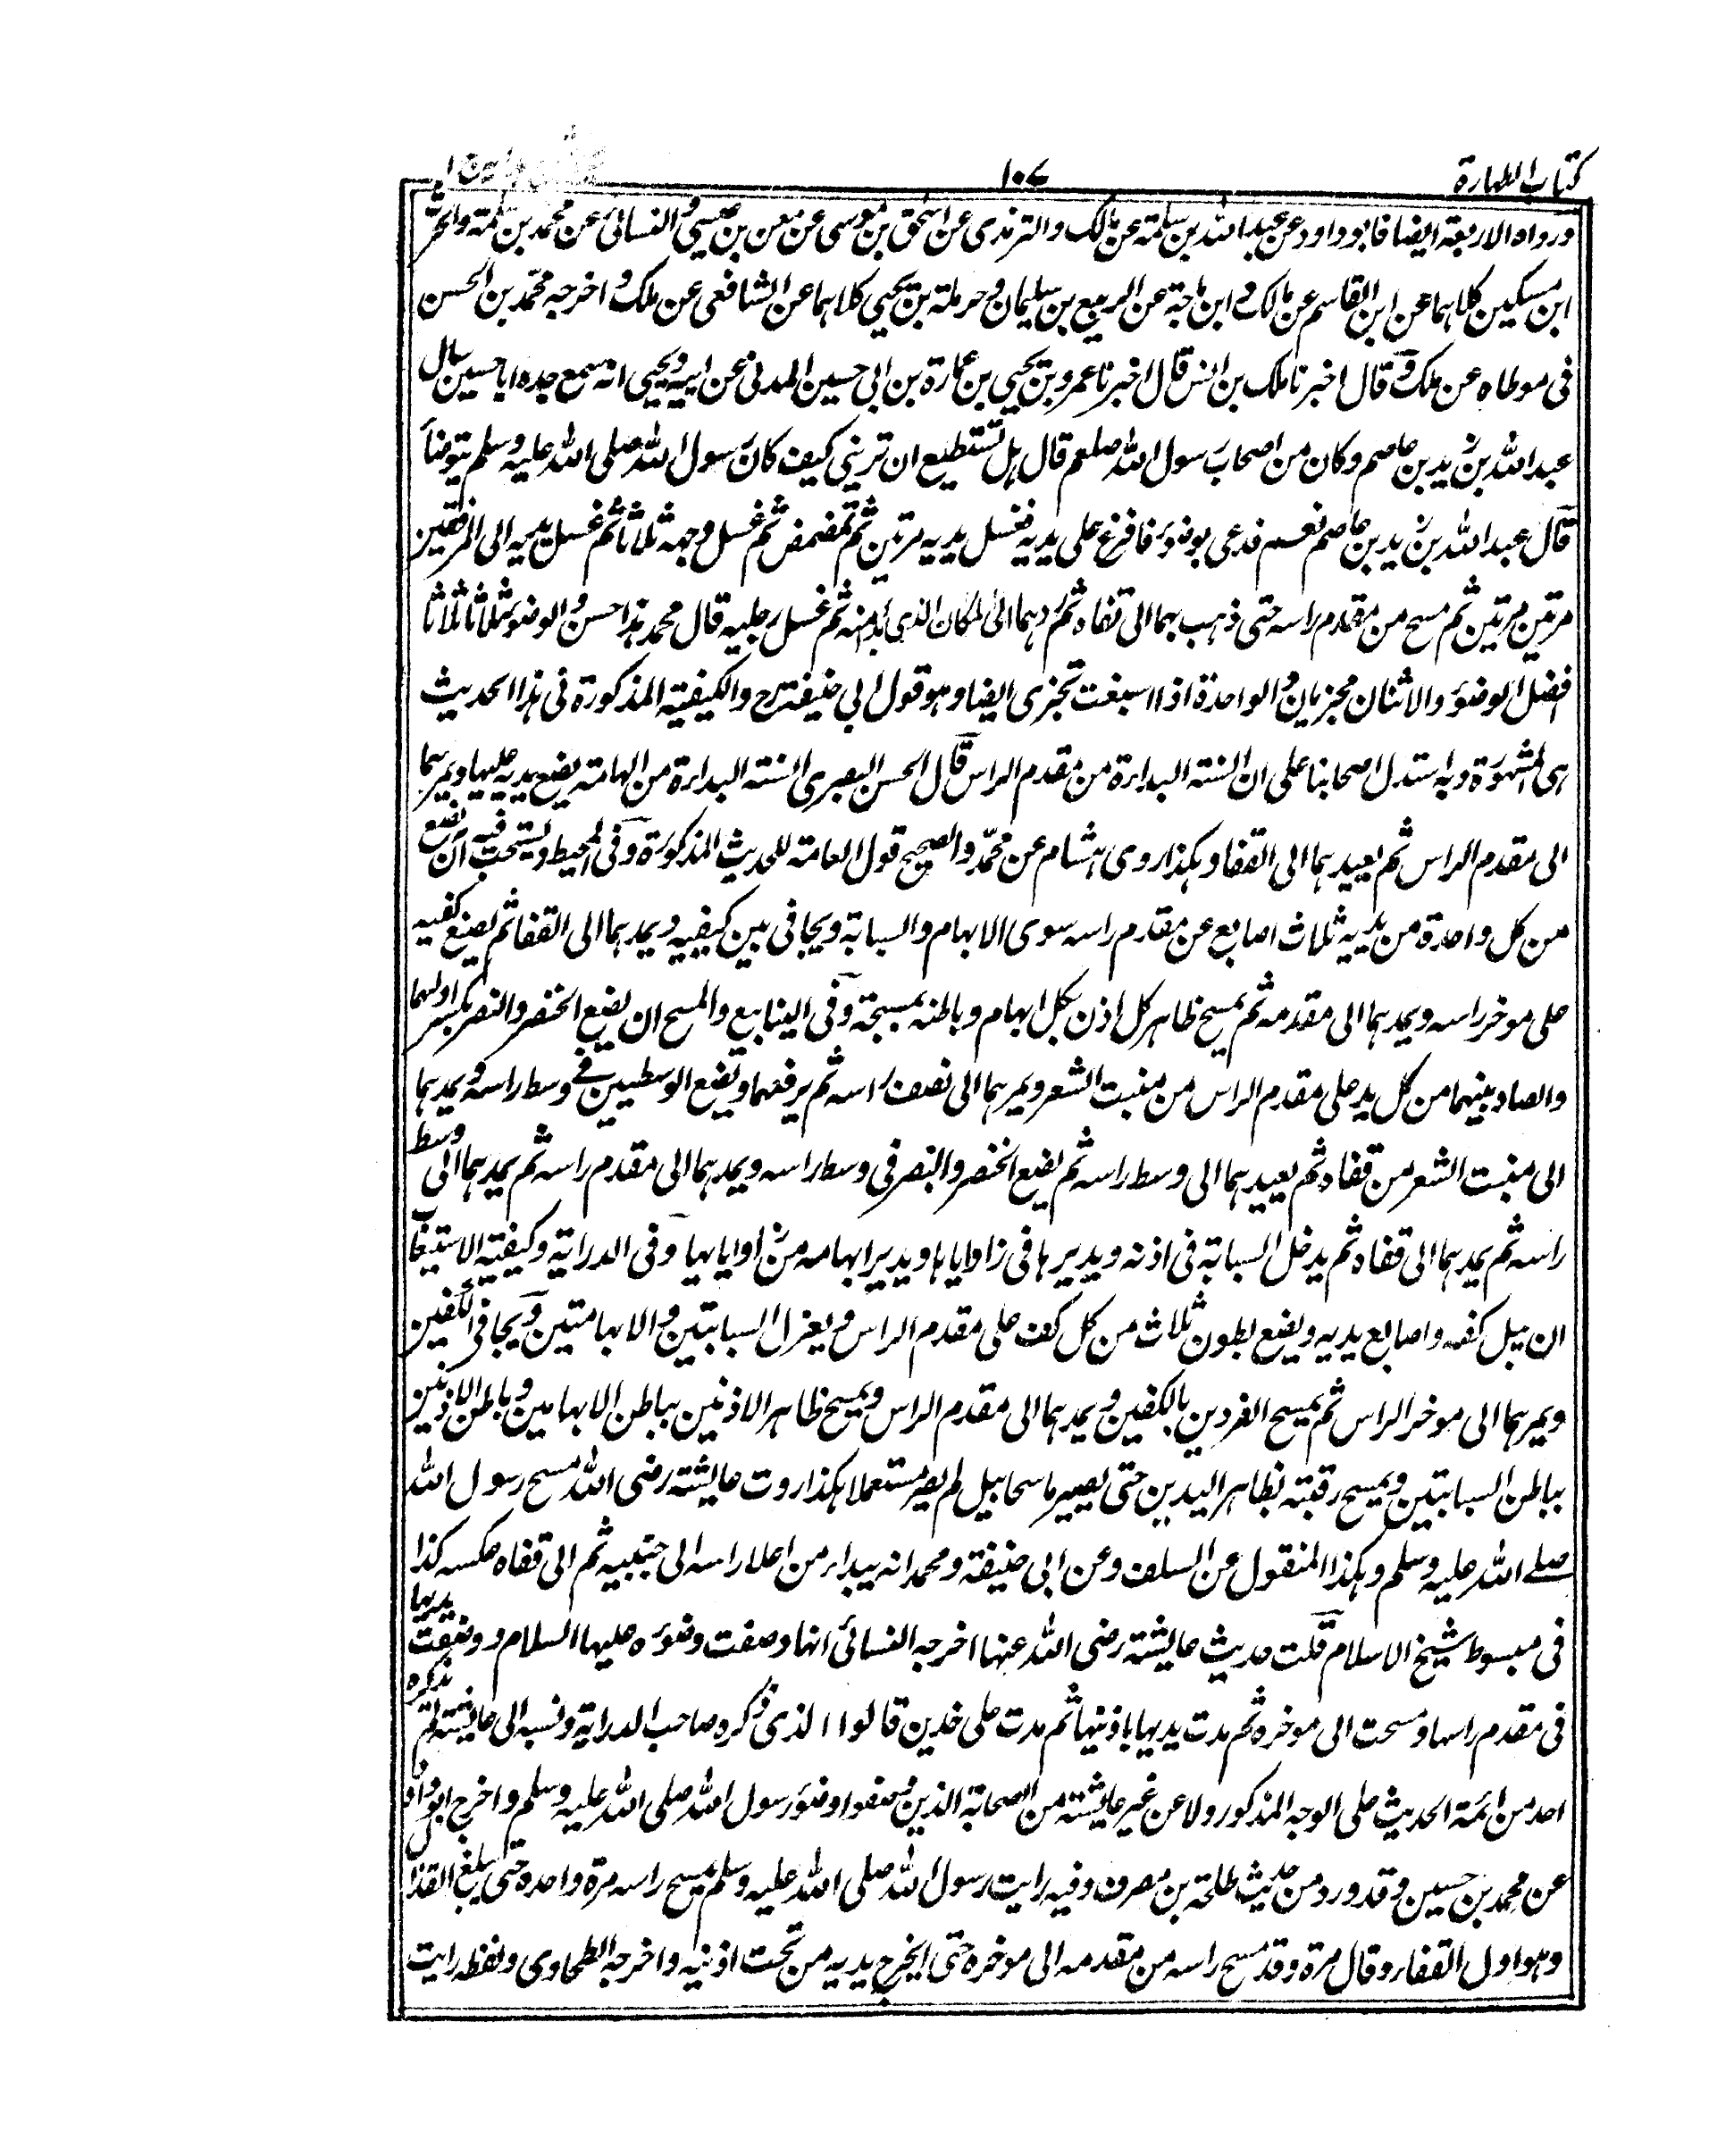 كتاب الطهارة ١٠٧
ورواه الاربعة ايضا فابو داود عن عبد الله بن سلمة عن مالك والترمذى عن اسحق بن موسى عن معن بن عيسى والنسائى عن محمد بن سلمة والحرث
ابن مسكين كلاهما عن ابن القاسم عن مالك وابن ماجة عن الربيع بن سليمان وحرملة بن يحيى كلاهما عن الشافعى عن ملك واخرجه محمد بن الحسن
فى موطاه عن ملك وقال اخبرنا ملك بن انس قال اخبرنا عمرو بن يحيى بن عمارة بن ابى حسين المدنى عن ابيه ويحيى انه سمع جده ابا حسين سال
عبد الله بن زيد بن عاصم وكان من اصحاب رسول الله صلعم قال هل تستطيع ان ترينى كيف كان رسول الله صلى الله عليه وسلم يتوضأ
قال عبد الله بن زيد بن عاصم نعم فدعى بوضوء فافرغ على يديه فغسل يديه مرتين ثم تمضمض ثم غسل وجهه ثلاثا ثم غسل يديه الى المرفقين
مرتين مرتين ثم مسح من مقدم راسه حتى ذهب بهما الى قفاه ثم ردهما الى المكان الذى بدأ منه ثم غسل رجليه قال محمد هذا حسن والوضوء ثلاثا ثلاثا
افضل الوضوء والاثنان مجزيان والواحدة اذا اسبغت تجزى ايضا وهو قول ابى حنيفة رح والكيفية المذكورة فى هذا الحديث
هى المشهورة وبه استدل اصحابنا على ان السنة البداءة من مقدم الراس قال الحسن البصرى السنة البداءة من الهامة يضع يديه عليها ويمر بهما
الى مقدم الراس ثم يعيدهما الى القفا وهكذا روى هشام عن محمد والصحيح قول العامة للحديث المذكورة وفى المحيط ويستحب فيه ان يضع
من كل واحدة من يديه ثلاث اصابع عن مقدم راسه سوى الابهام والسبابة ويجافى بين كيفيه ويمدهما الى القفا ثم يضع كفيه
على موخر راسه ويمدهما الى مقدمه ثم يمسح ظاهر كل اذن بكل ابهام وباطنه بمسبحة وفى الينابيع والمسح ان يضع الخنصر والنصر بكسر اولهما
والصاد بينهما من كل يد على مقدم الراس من منبت الشعر ويمرهما الى نصف راسه ثم يرفعهما ويضع الوسطيين فى وسط راسه ويمدهما
الى منبت الشعر من قفاه ثم يعيدهما الى وسط راسه ثم يضع الخنصر والبنصر فى وسط راسه ويمدهما الى مقدم راسه ثم يمدهما الى وسط
راسه ثم يمدهما الى قفاه ثم يدخل السبابة فى اذنه ويديرها فى زاوايا ها ويدير ابهامه من زاوايا بها وفى الدراية وكيفية الاستيعاب
ان يبل كفه واصابع يديه ويضع بطون ثلاث من كل كف على مقدم الراس ويعزل السبابتين والابهامتين ويجافى الكفين
ويمرهما الى موخر الراس ثم يمسح الفردين بالكفين ويمدهما الى مقدم الراس ويمسح ظاهر الاذنين بباطن الابهامين وباطن الاذنين
بباطن السبابتين ويمسح رقبته بظاهر اليدين حتى يصير ماسحا ببل لم يصر مستعملا هكذا روت عايشة رضى الله مسح رسول الله
صلے الله عليه وسلم وهكذا المنقول عن السلف وعن ابى حنيفة ومحمد انه يبداء من اعلا راسه الى جنبيه ثم الى قفاه عكسه كذا
فى مبسوط شيخ الاسلام قلت حديث عايشة رضى الله عنها اخرجه النسائى انها وصفت وضوءه عليها السلام ووضعت يديها
فى مقدم راسها ومسحت الى موخره ثم مدت يديها باذنيها ثم مدت على خدين قالوا الذى ذكره صاحب الدراية ونسبه الى عايشة لم يذكره
احد من ائمة الحديث على الوجه المذكور ولا عن غير عايشة من الصحابة الذين وصفوا وضوء رسول الله صلى الله عليه وسلم واخرج ابو داود
عن محمد بن حسين وقد ورد من حديث طلحة بن مصرف وفيه رايت رسول الله صلى الله عليه وسلم يمسح راسه مرة واحدة حتى يبلغ القذال
وهو اول القفاء وقال مرة وقد مسح راسه من مقدمه الى موخره حتى اخرج يديه من تحت اذنيه واخرجه الطحاوى ولفظه رايت